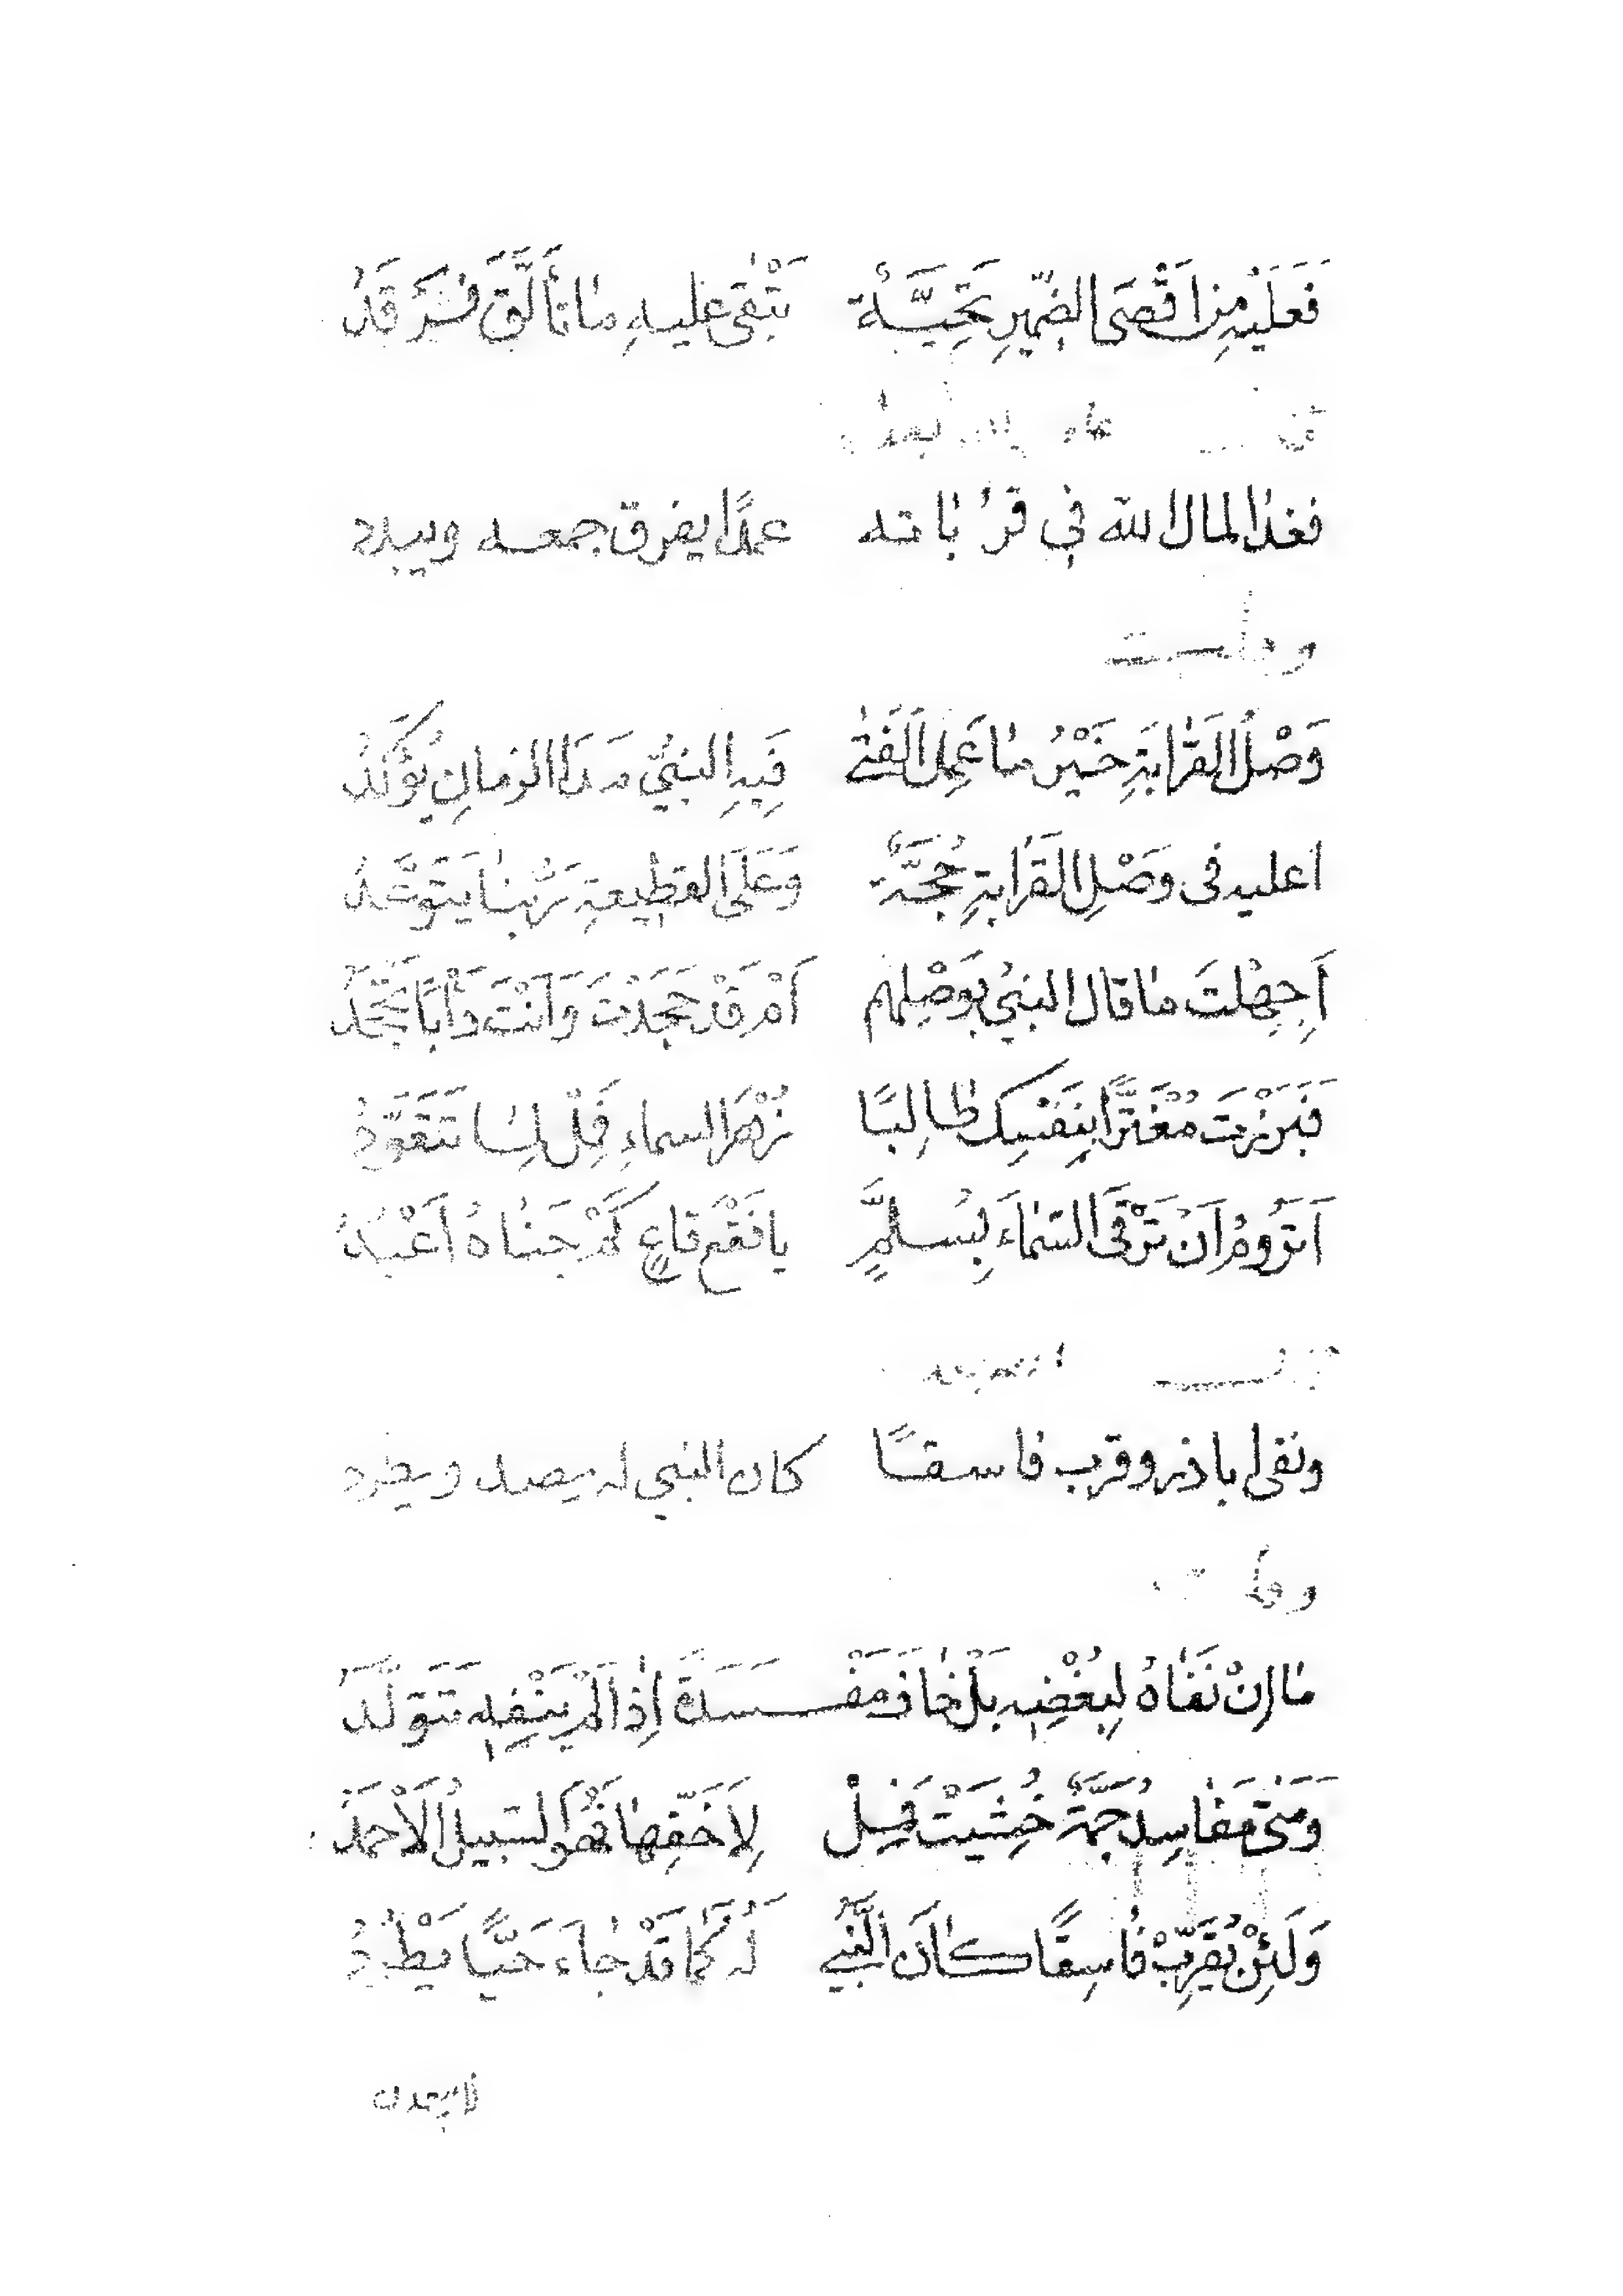 فَعَلَيْهِ مِنْ اَقْصَى الضَّمِيرِ تَحِيَّةٌ تَبْقٰى عليهِ مَا تَأَلَّقَ فَرْقَدُ
فغدا لمال الله في قرباته عمدًا يفرق جمعه ويبدد
وقلت
وَصْلُ القَرَابَةِ خَيْرُ مَا عَمِلَ الفَتٰى فِيهِ النبيُّ مَدَا الزمانِ يُؤَكِّدُ
اعليه فى وَصْلِ القَرَابَةِ حُجَّةٌ وَعَلَى القَطِيعةِ رَبُّنا يَتَوَعَّدُ
اَجَهِلْتَ مَا قال النبيُّ بِوَصْلِهم أَمْ قَدْ جَحَدْتَ وَاَنْتَ دَأْبًا تَجْحَدُ
فَبَرَزْتَ مُغْتَرًّا بِنَفْسِكَ طَالِبًا زُهْرَ السماءِ فَلِلسُّهَا تَتَفَقَّدُ
اَتَرُومُ اَنْ تَرْقَى السَّمَاءَ بِسُلَّمٍ يا فَقْعَ قاعٍ كَمْ جَنَاهُ اَعْبُدُ
ونفى اباذر وقرب فاسقًا كان النبي له يصد ويطرد
وقلت
مَا اِنْ نَفَاهُ لِبُغْضِهِ بَلْ خَافَ مَفْسَدَةً اِذَا لَمْ يَنْفِهِ تَتَوَلَّدُ
وَمَتٰى مَفَاسِدُ جَمَّةٌ خُشِيَتْ فَمِلْ لِاَخَفِّهَا فَهُوَ السَّبِيلُ الاَحْمَدُ
وَلَئِنْ يُقَرِّبْ فَاسِقًا كَانَ النَّبِيْ لَهُ كَمَا قَدْ جَاءَ حَيًّا يَطْرُدُ